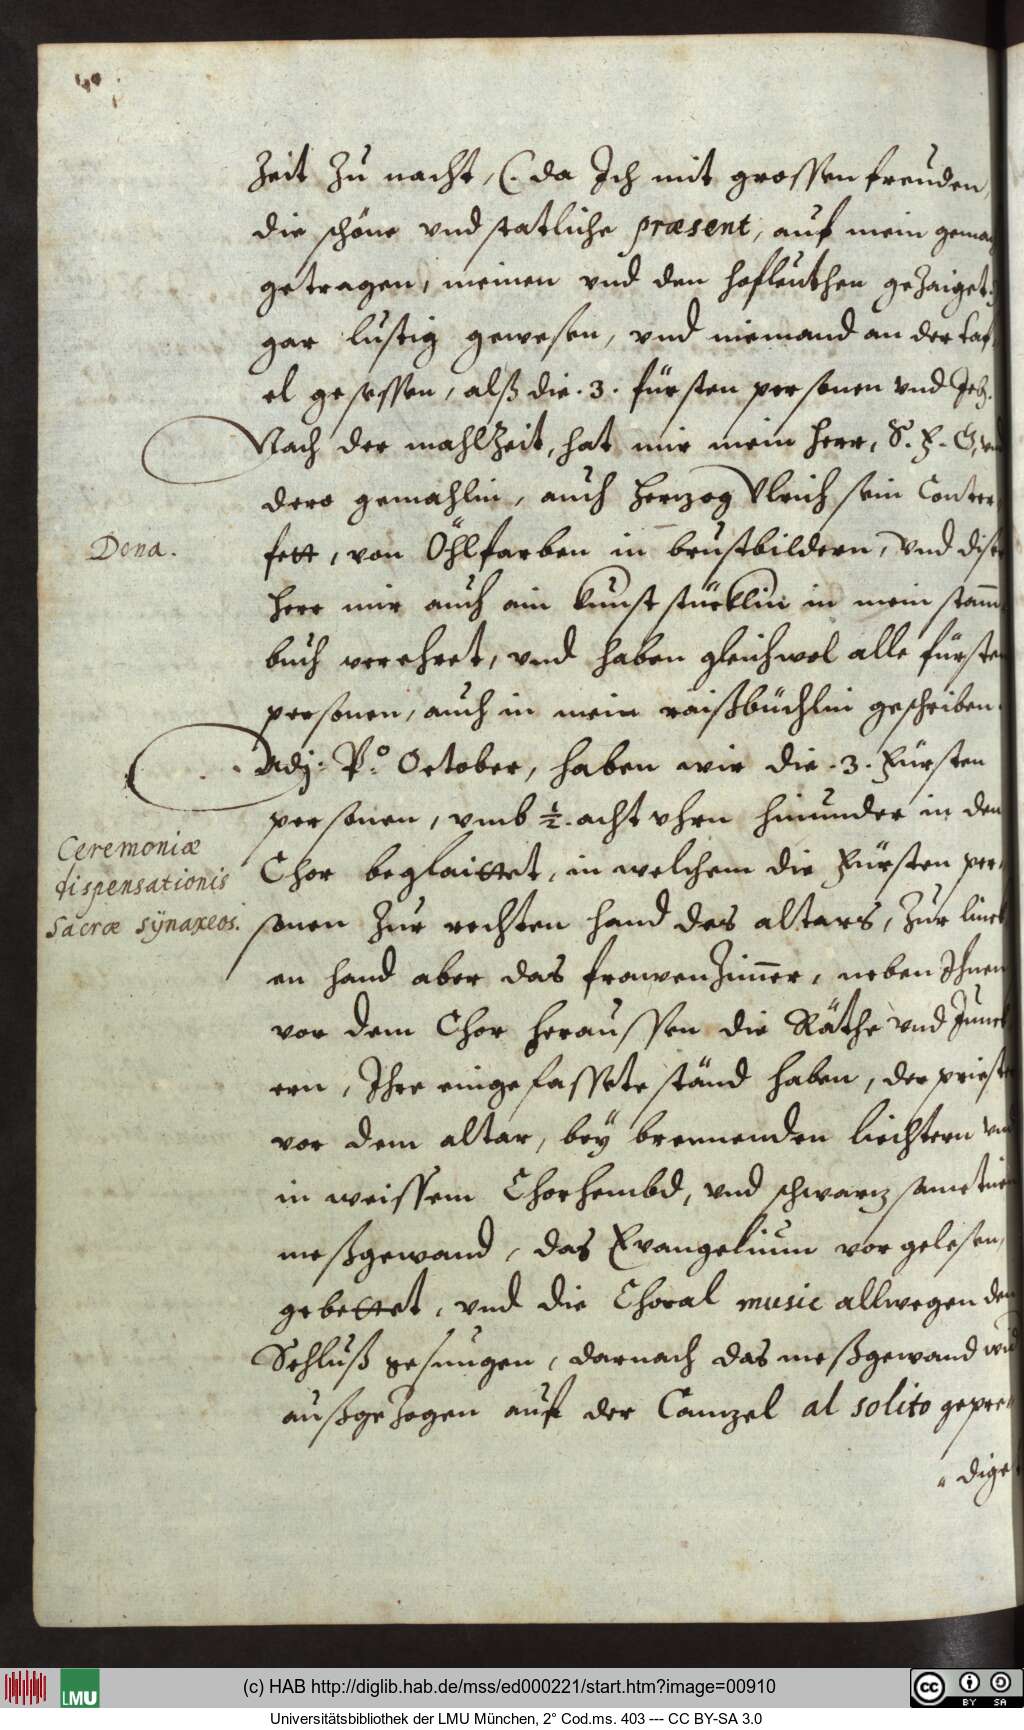 Zeit Zu nacht, (. da Ich mit grossen freuden,
die schöne vnd statliche præsent, auf mein gemach
getragen, meinen vnd den hofleuthen geZaiget.)
gar lustig gewesen, vnd niemand an der taf
el gesessen, alß die .3. fürsten personen vnd Ich.
Nach der mahlZeit, hat mir mein herr, S. F. G, vnd
dero gemahlin, auch herzog Vlrich sein Conter,
Dona.
fett, von Öhlfarben in brustbildern, vnd diser
herr mir auch ain kunst stücklin in mein stamm
buch verehret, vnd haben gleichwol alle fürsten
personen, auch in mein raißbüchlin geschriben.
Adj: P.o October, haben wir die .3. Fürsten
personen, vmb ½. acht vhrn hinunder in den
Ceremoniæ
dispensationis
Sacræ sÿnaxeos.
Chor beglaittet, in welchem die Fürsten per,
sonen Zur rechten hand des altars, Zur linck
en hand aber das frawenZimmer, neben Ihnen
vor dem Chor heraussen die Räthe vnd Junck
ern, Ihre eingefassete ständ haben, der priester
vor dem altar, beÿ brennenden liechtern vnd
in weissem Chorhembd, vnd schwarz sametinen
meßgewand, das Evangelium vorgelesen,
gebettet, vnd die Choral music allwegen den
Schluß gesungen, darnach das meßgewand wid
außgeZogen auf der Canzel al solito gepre,
dige
(c) HAB http://diglib.hab.de/mss/ed000221/start.htm?image=00910
LMU
cc BY SA
Universitätsbibliothek der LMU München, 2° Cod.ms. 403 --- CC BY-SA 3.0